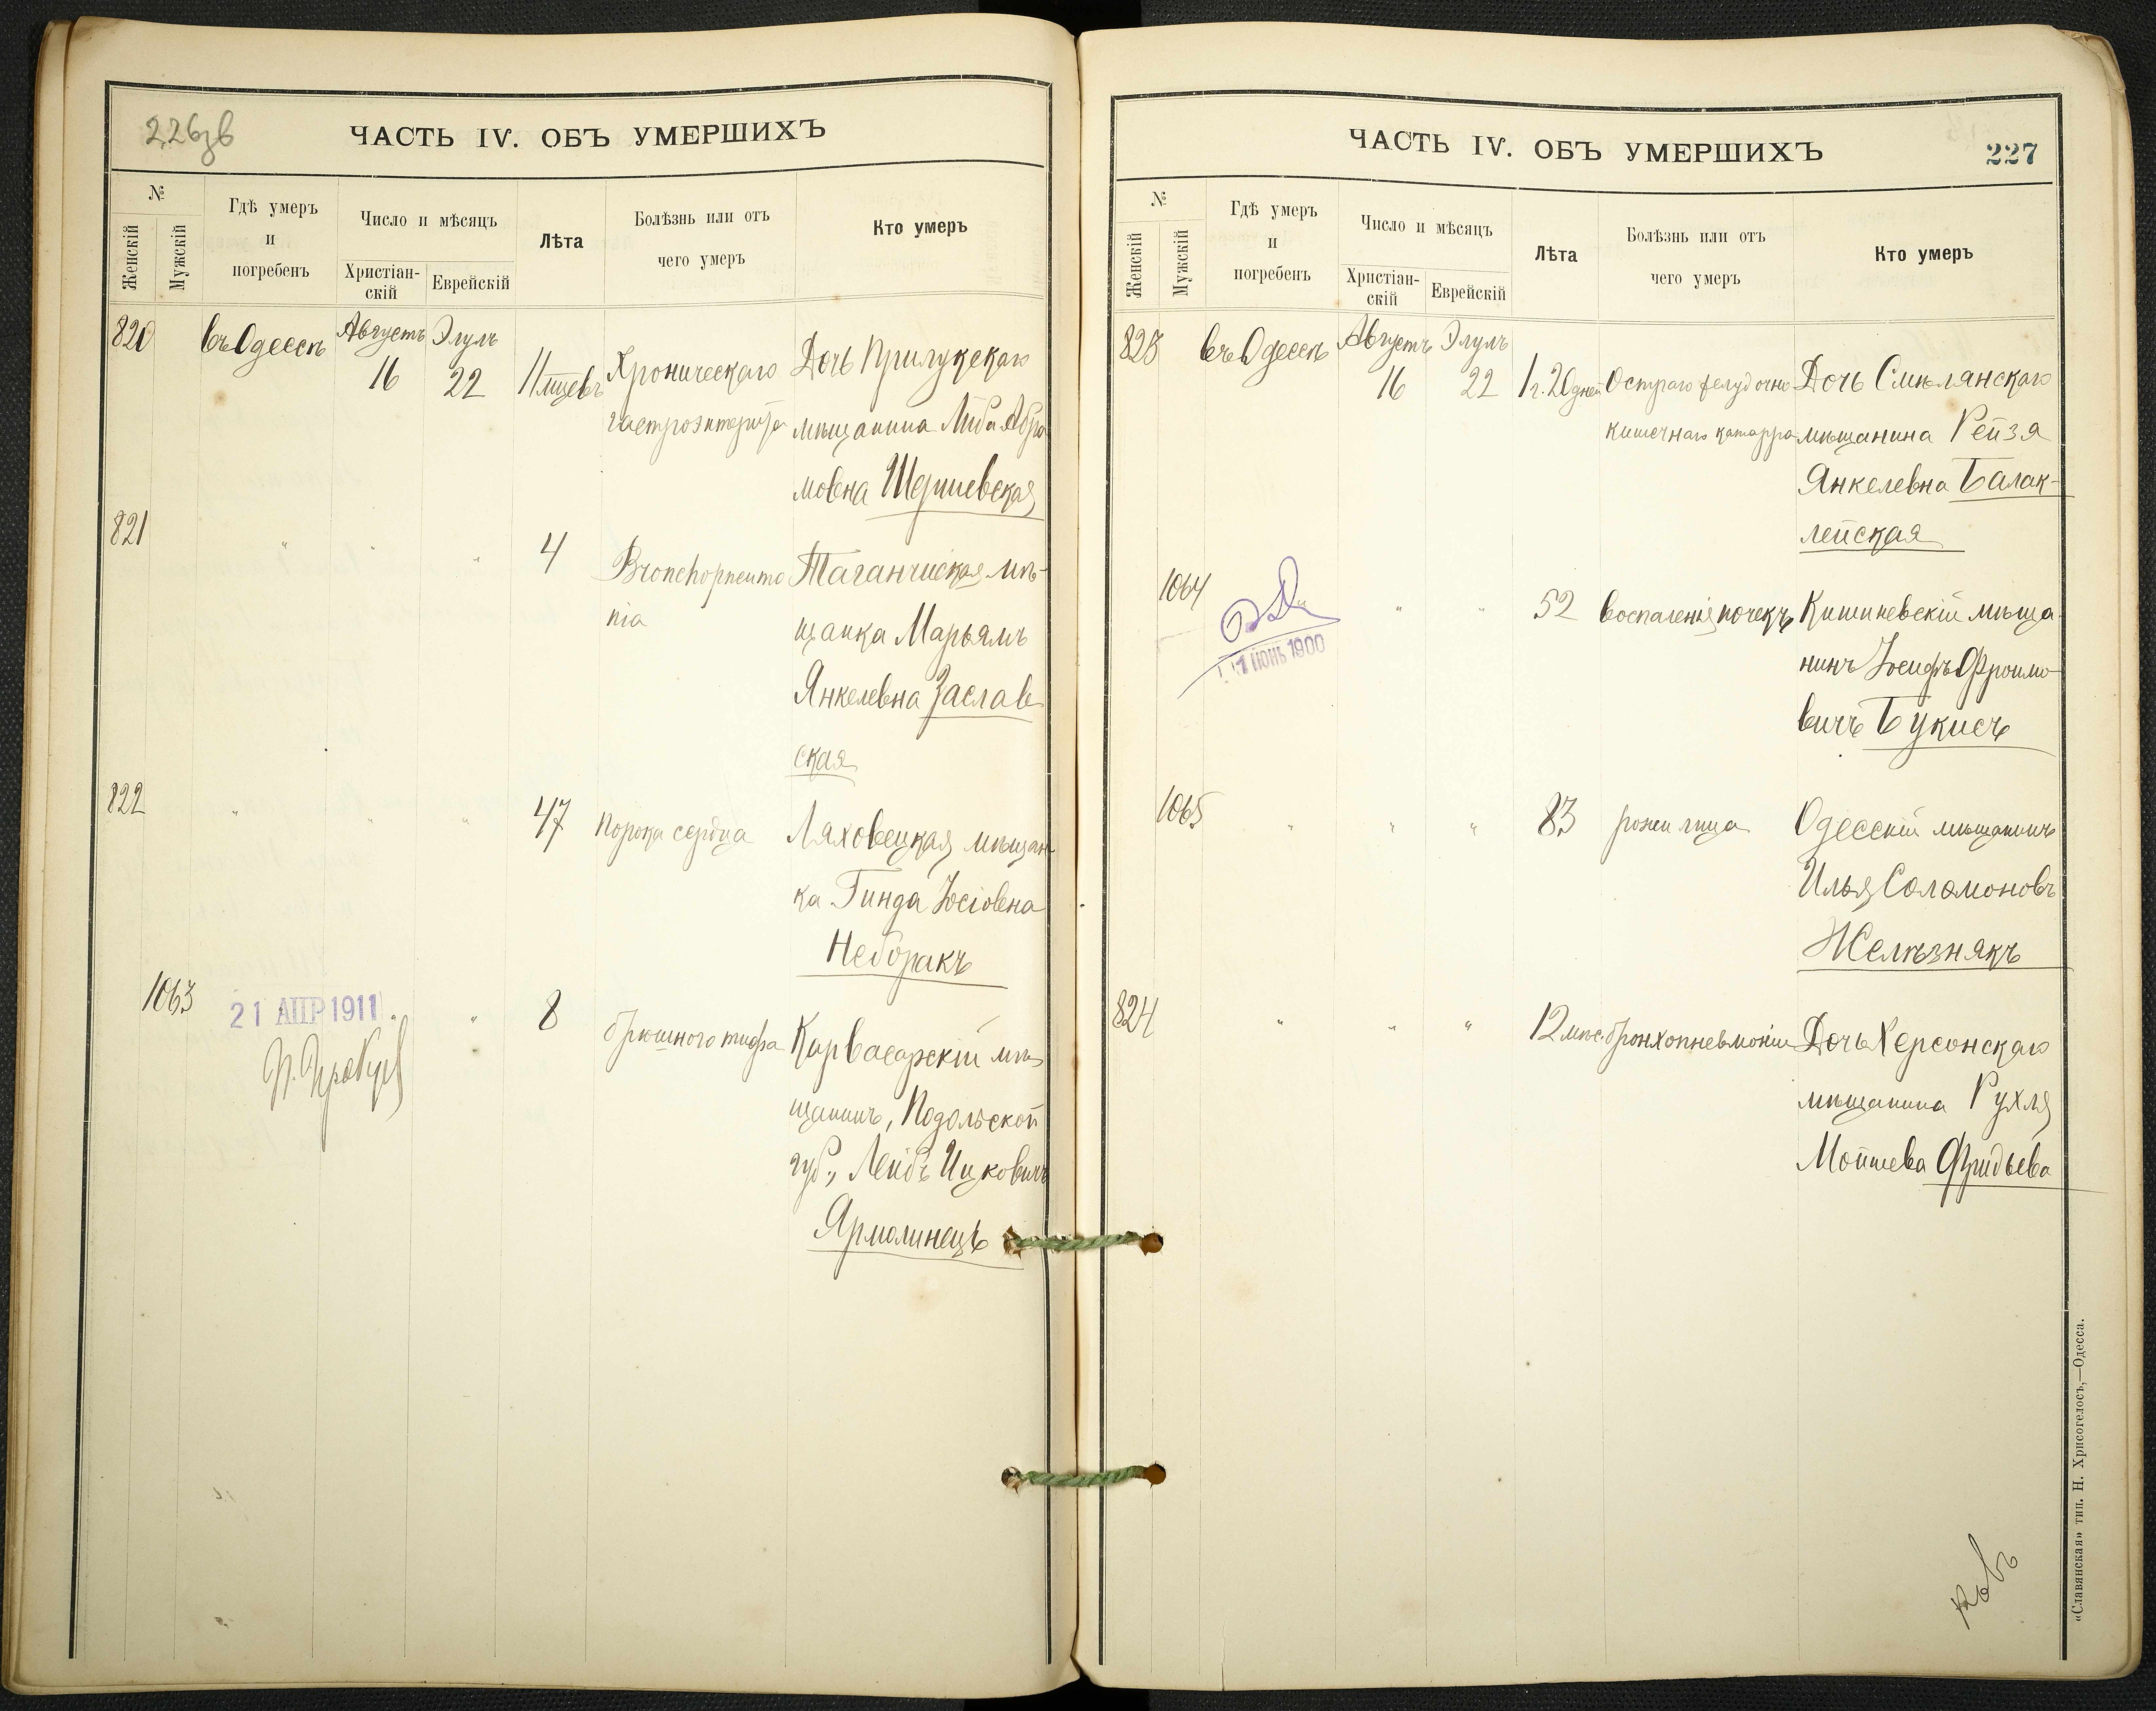 226зв
ЧАСТЬ IV. ОБЪ УМЕРШИХЪ
№
Женскій
Мужскій
Гдѣ умеръ
и
погребенъ
Число и мѣсяцъ
Христіан-
скій
Еврейскій
Лѣта
Болѣзнь или отъ
чего умеръ
Кто умеръ
820 въ Одессѣ Августъ 16 Элулъ 22 11 мцевъ Хроническаго Дочь Прилукскаго
гастроэнтерита мѣщанина Либа Абра
мовна
821 " " " 4 Bronchopneumo Таганчиская мѣ-
nia щанка Марьямъ
Янкелевна Заслав
ская
822 " " " 47 порока сердца Ляховецкая мѣщан-
ка Гинда Іосіовна
Неборакъ
1063 " " 8 брюшного тифа Карвасарскій мѣ
21 АПР 1911
щанинъ, Подольской
губ., Лейбъ Ицковичъ
Ярмолинецъ
ЧАСТЬ IV. ОБЪ УМЕРШИХЪ
227
№
Женскій
Мужскій
Гдѣ умеръ
и
погребенъ
Число и мѣсяцъ
Христіан-
скій
Еврейскій
Лѣта
Болѣзнь или отъ
чего умеръ
Кто умеръ
823 въ Одессѣ Августъ 16 Элулъ 22 1 г. 20 дней Остраго желудочно Дочь Смѣлянскаго
кишечнаго катарра мѣщанина Рейзя
Янкелевна Балак-
лейская
1064 " " " 52 воспаленія почекъ Кишиневскій мѣща-
1 ІЮНЬ 1900
нинъ Іосифъ Фроимо-
вичъ Букисъ
1065 " " " 83 рожи лица Одесскій мѣщанинъ
Илья Соломоновъ
Желѣзнякъ
824 " " " 12 мѣс бронхопневмоніи Дочь Херсонскаго
мѣщанина Рухля
Мойшева Фридьева
«Славянская» тип. Н. Хрисогелосъ,—Одесса.